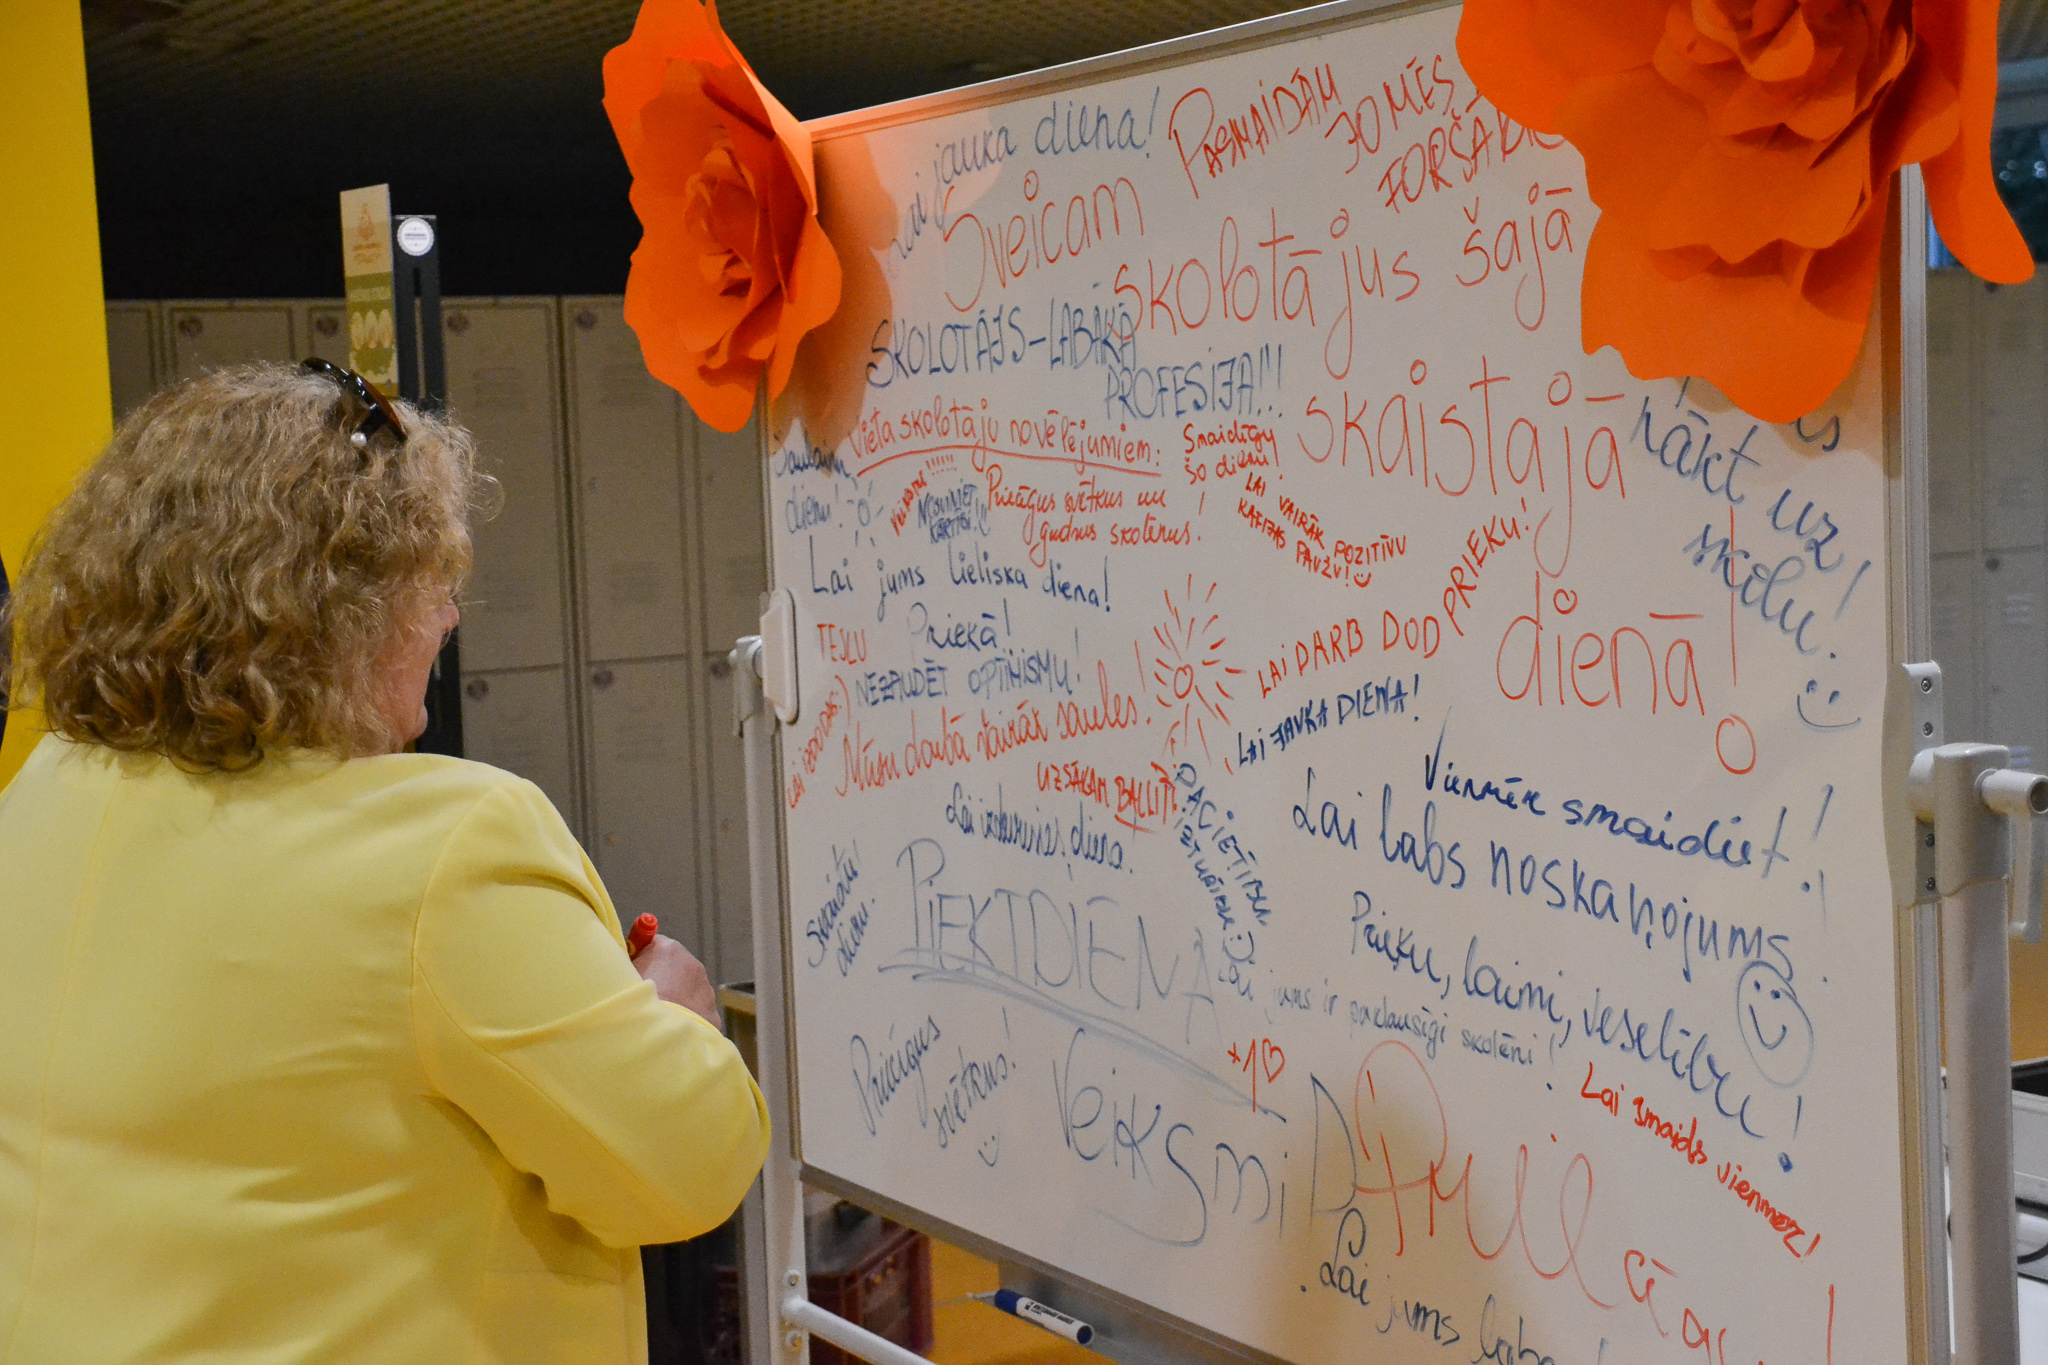 Lai jauka diena!
PASMAIDĀM
JO MĒS
FORŠĀKIE
Sveicam
skolotājus šajā
skaistajā
dienā!
SKOLOTĀJS-LABĀKĀ
PROFESIJA!!!
Vieta skolotāju novēlējumiem:
Smaidīgu
šo dienu!
Saulainu
dienu!
NOSVINIET
KĀRTĪGI!
Priecīgus svētkus un
gudrus skolēnus!
LAI VAIRĀK POZITĪVU
KAFIJAS PAUŽU!
nākt uz
skolu!
Lai jums lieliska diena!
Priekā!
NEZAUDĒT OPTIMISMU!
LAI IZDODAS:)
Mūsu darbā vairāk saules!
LAI DARB DOD PRIEKU!
LAI JAUKA DIENA!
UZSĀKAM BALLĪTI!
Lai izdevusies diena!
PACIETĪBU
IZTURĪBU:)
Vienmēr smaidiet!
Lai labs noskaņojums!
Skaistu
dienu!
PIEKTDIENA
Prieku, laimi, veselību!
Lai jums ir paklausīgi skolēni!
+1
Priecīgus
svētkus!
Veiksmi
Lai smaids vienmēr!
Lai jums laba